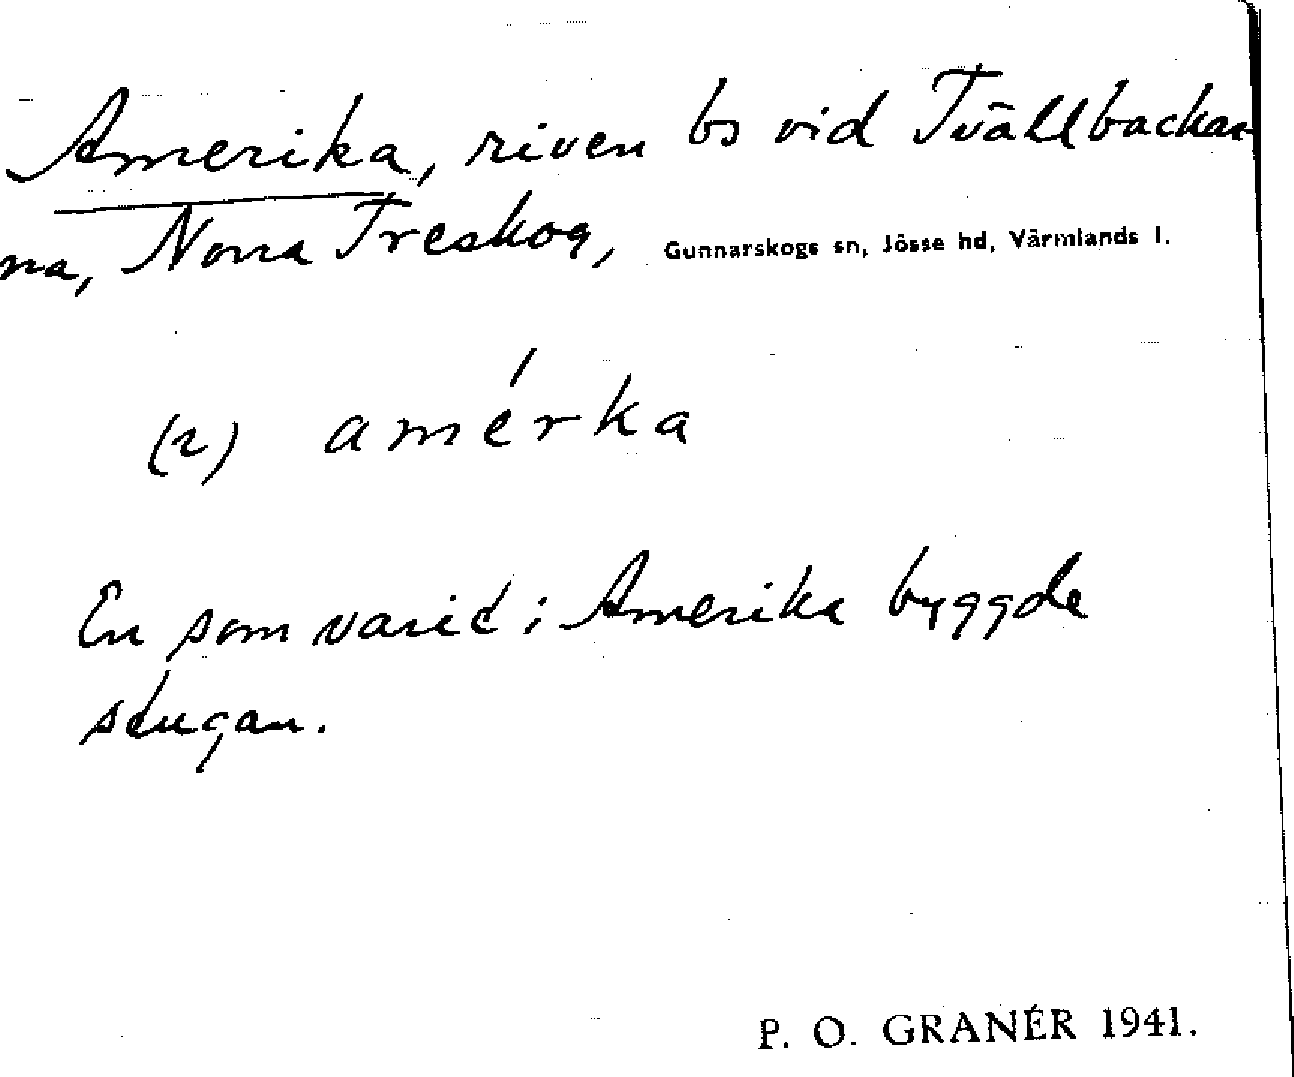 Amerika, riven bs vid Tvällbackar
na, Norra Treskog, Gunnarskogs sn, Jösse hd, Värmlands l.
(2) amérka
En som varit i Amerika byggde
stugan.
P. O. GRANÉR 1941.